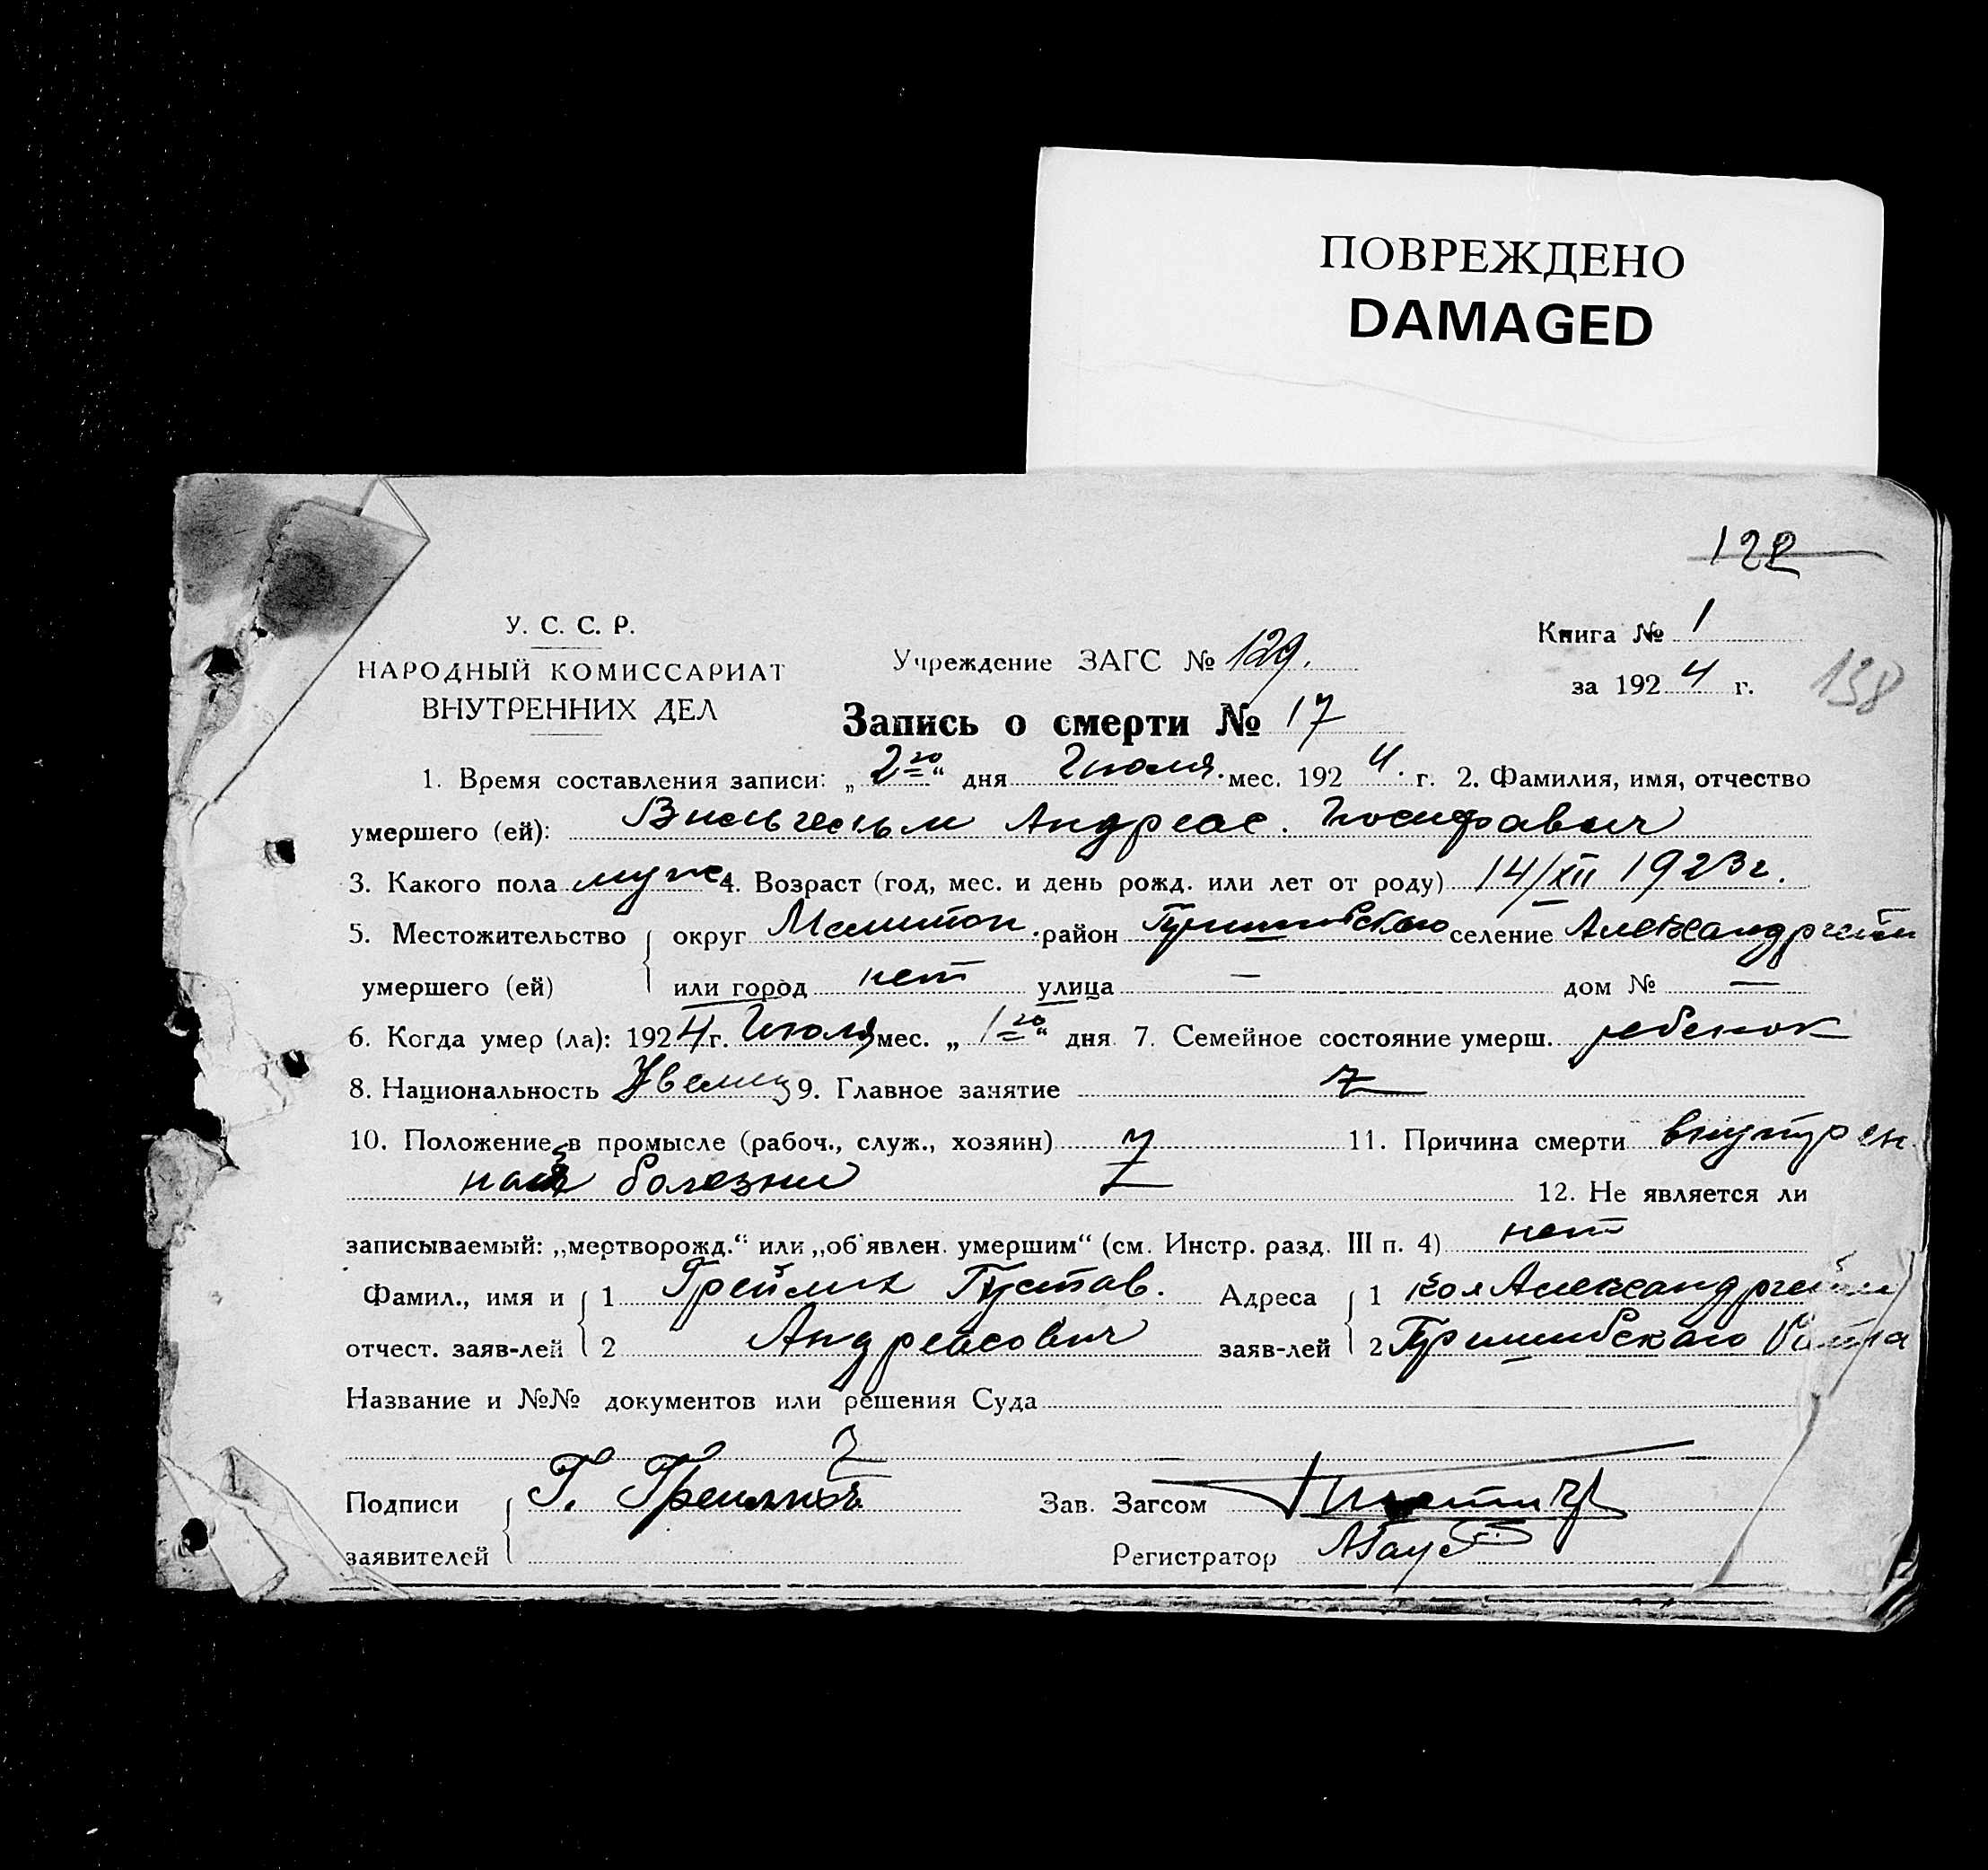 ПОВРЕЖДЕНО
DAMAGED
122
У. С. С. Р.
НАРОДНЫЙ КОМИССАРИАТ
ВНУТРЕННИХ ДЕЛ
Учреждение ЗАГС № 129.
Книга № 1
за 1924 г.
138
Запись о смерти № 17
1. Время составления записи: „2го“ дня Июля. мес. 1924. г. 2. Фамилия, имя, отчество
умершего (ей): Вильгельм Андреас. Иосифович
3. Какого пола муж 4. Возраст (год, мес. и день рожд. или лет от роду) 14/XII 1923г.
5. Местожительство округ Мелитоп. район Пришибского селение Александргейм
умершего (ей) или город нет улица — дом № —
6. Когда умер (ла): 1924 г. Июля мес. „1го“ дня 7. Семейное состояние умерш. ребенок
8. Национальность 9. Главное занятие
10. Положение в промысле (рабоч., служ., хозяин) 11. Причина смерти внутрен
ная болезни 12. Не является ли
записываемый: „мертворожд.“ или „об'явлен. умершим“ (см. Инстр. разд. III п. 4) нет
Фамил., имя и 1 Грейлих Густав. Адреса 1 кол Александргейм
отчест. заяв-лей 2 Андреасович заяв-лей 2 Пришибского
Название и №№ документов или решения Суда
Подписи Г. Зав. Загсом
заявителей Регистратор